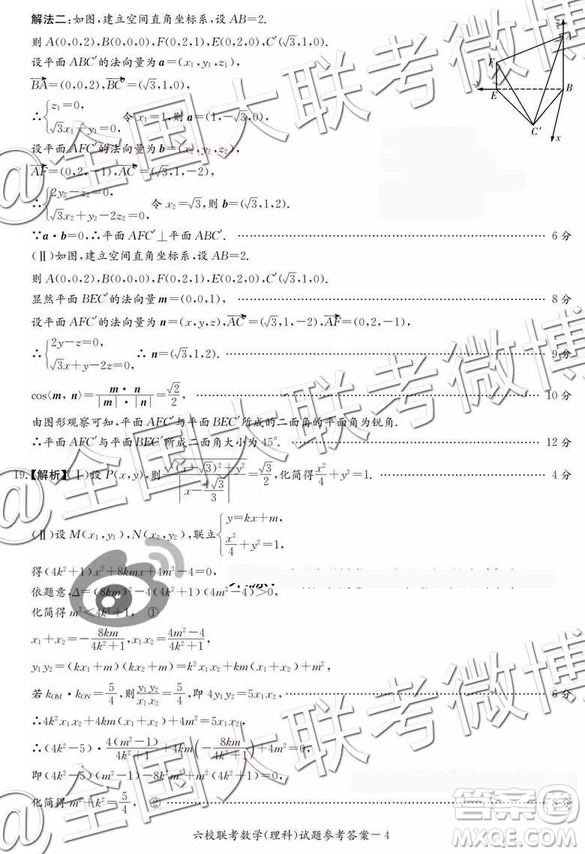 解法二:如图,建立空间直角坐标系,设AB=2.
则A(0,0,2),B(0,0,0),F(0,2,1),E(0,2,0),C′(√3,1,0).
设平面ABC′的法向量为a=(x₁,y₁,z₁),
BA=(0,0,2),BC′=(√3,1,0),
∴{z₁=0,
√3x₁+y₁=0, 令x₁=1,则a=(1,-√3,0),
设平面AFC′的法向量为b=(x₂,y₂,z₂),
AF=(0,2,-1),AC′=(√3,1,-2),
∴{2y₂-z₂=0,
√3x₂+y₂-2z₂=0, 令x₂=√3,则b=(√3,1,2).
∵a·b=0,∴平面AFC′⊥平面ABC′. 6分
(Ⅱ)如图,建立空间直角坐标系,设AB=2.
则A(0,0,2),B(0,0,0),F(0,2,1),E(0,2,0),C′(√3,1,0).
显然平面BEC′的法向量m=(0,0,1), 8分
设平面AFC′的法向量为n=(x,y,z),AC′=(√3,1,-2),AF=(0,2,-1),
∴{2y-z=0,
√3x+y-2z=0, ∴n=(√3,1,2). 9分
cos⟨m,n⟩=m·n/|m|·|n|=√2/2, 10分
由图形观察可知,平面AFC′与平面BEC′所成的二面角的平面角为锐角.
∴平面AFC′与平面BEC′所成二面角大小为45°. 12分
19.【解析】(Ⅰ)设P(x,y),则√((x-√3)²+y²)/|x-4√3/3|=√3/2,化简得x²/4+y²=1. 4分
(Ⅱ)设M(x₁,y₁),N(x₂,y₂),联立{y=kx+m,
x²/4+y²=1,
得(4k²+1)x²+8kmx+4m²-4=0,
依题意,Δ=(8km)²-4(4k²+1)(4m²-4)>0,
化简得m²<4k²+1, ①
x₁+x₂=-8km/(4k²+1),x₁x₂=(4m²-4)/(4k²+1),
y₁y₂=(kx₁+m)(kx₂+m)=k²x₁x₂+km(x₁+x₂)+m²,
若k_OM·k_ON=5/4,则y₁y₂/x₁x₂=5/4,即4y₁y₂=5x₁x₂, 6分
∴4k²x₁x₂+4km(x₁+x₂)+4m²=5x₁x₂,
∴(4k²-5)·4(m²-1)/(4k²+1)+4km·(-8km/(4k²+1))+4m²=0,
即(4k²-5)(m²-1)-8k²m²+m²(4k²+1)=0,
化简得m²+k²=5/4, ②
六校联考数学(理科)试题参考答案-4
A
F
E
B
C′
x
y
@全国大联考微博
@全国大联考微博
@全国大联考微博
答案圈